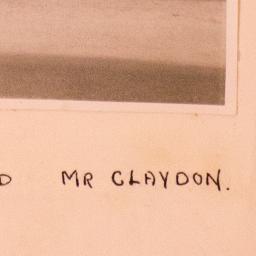 D MR CLAYDON.